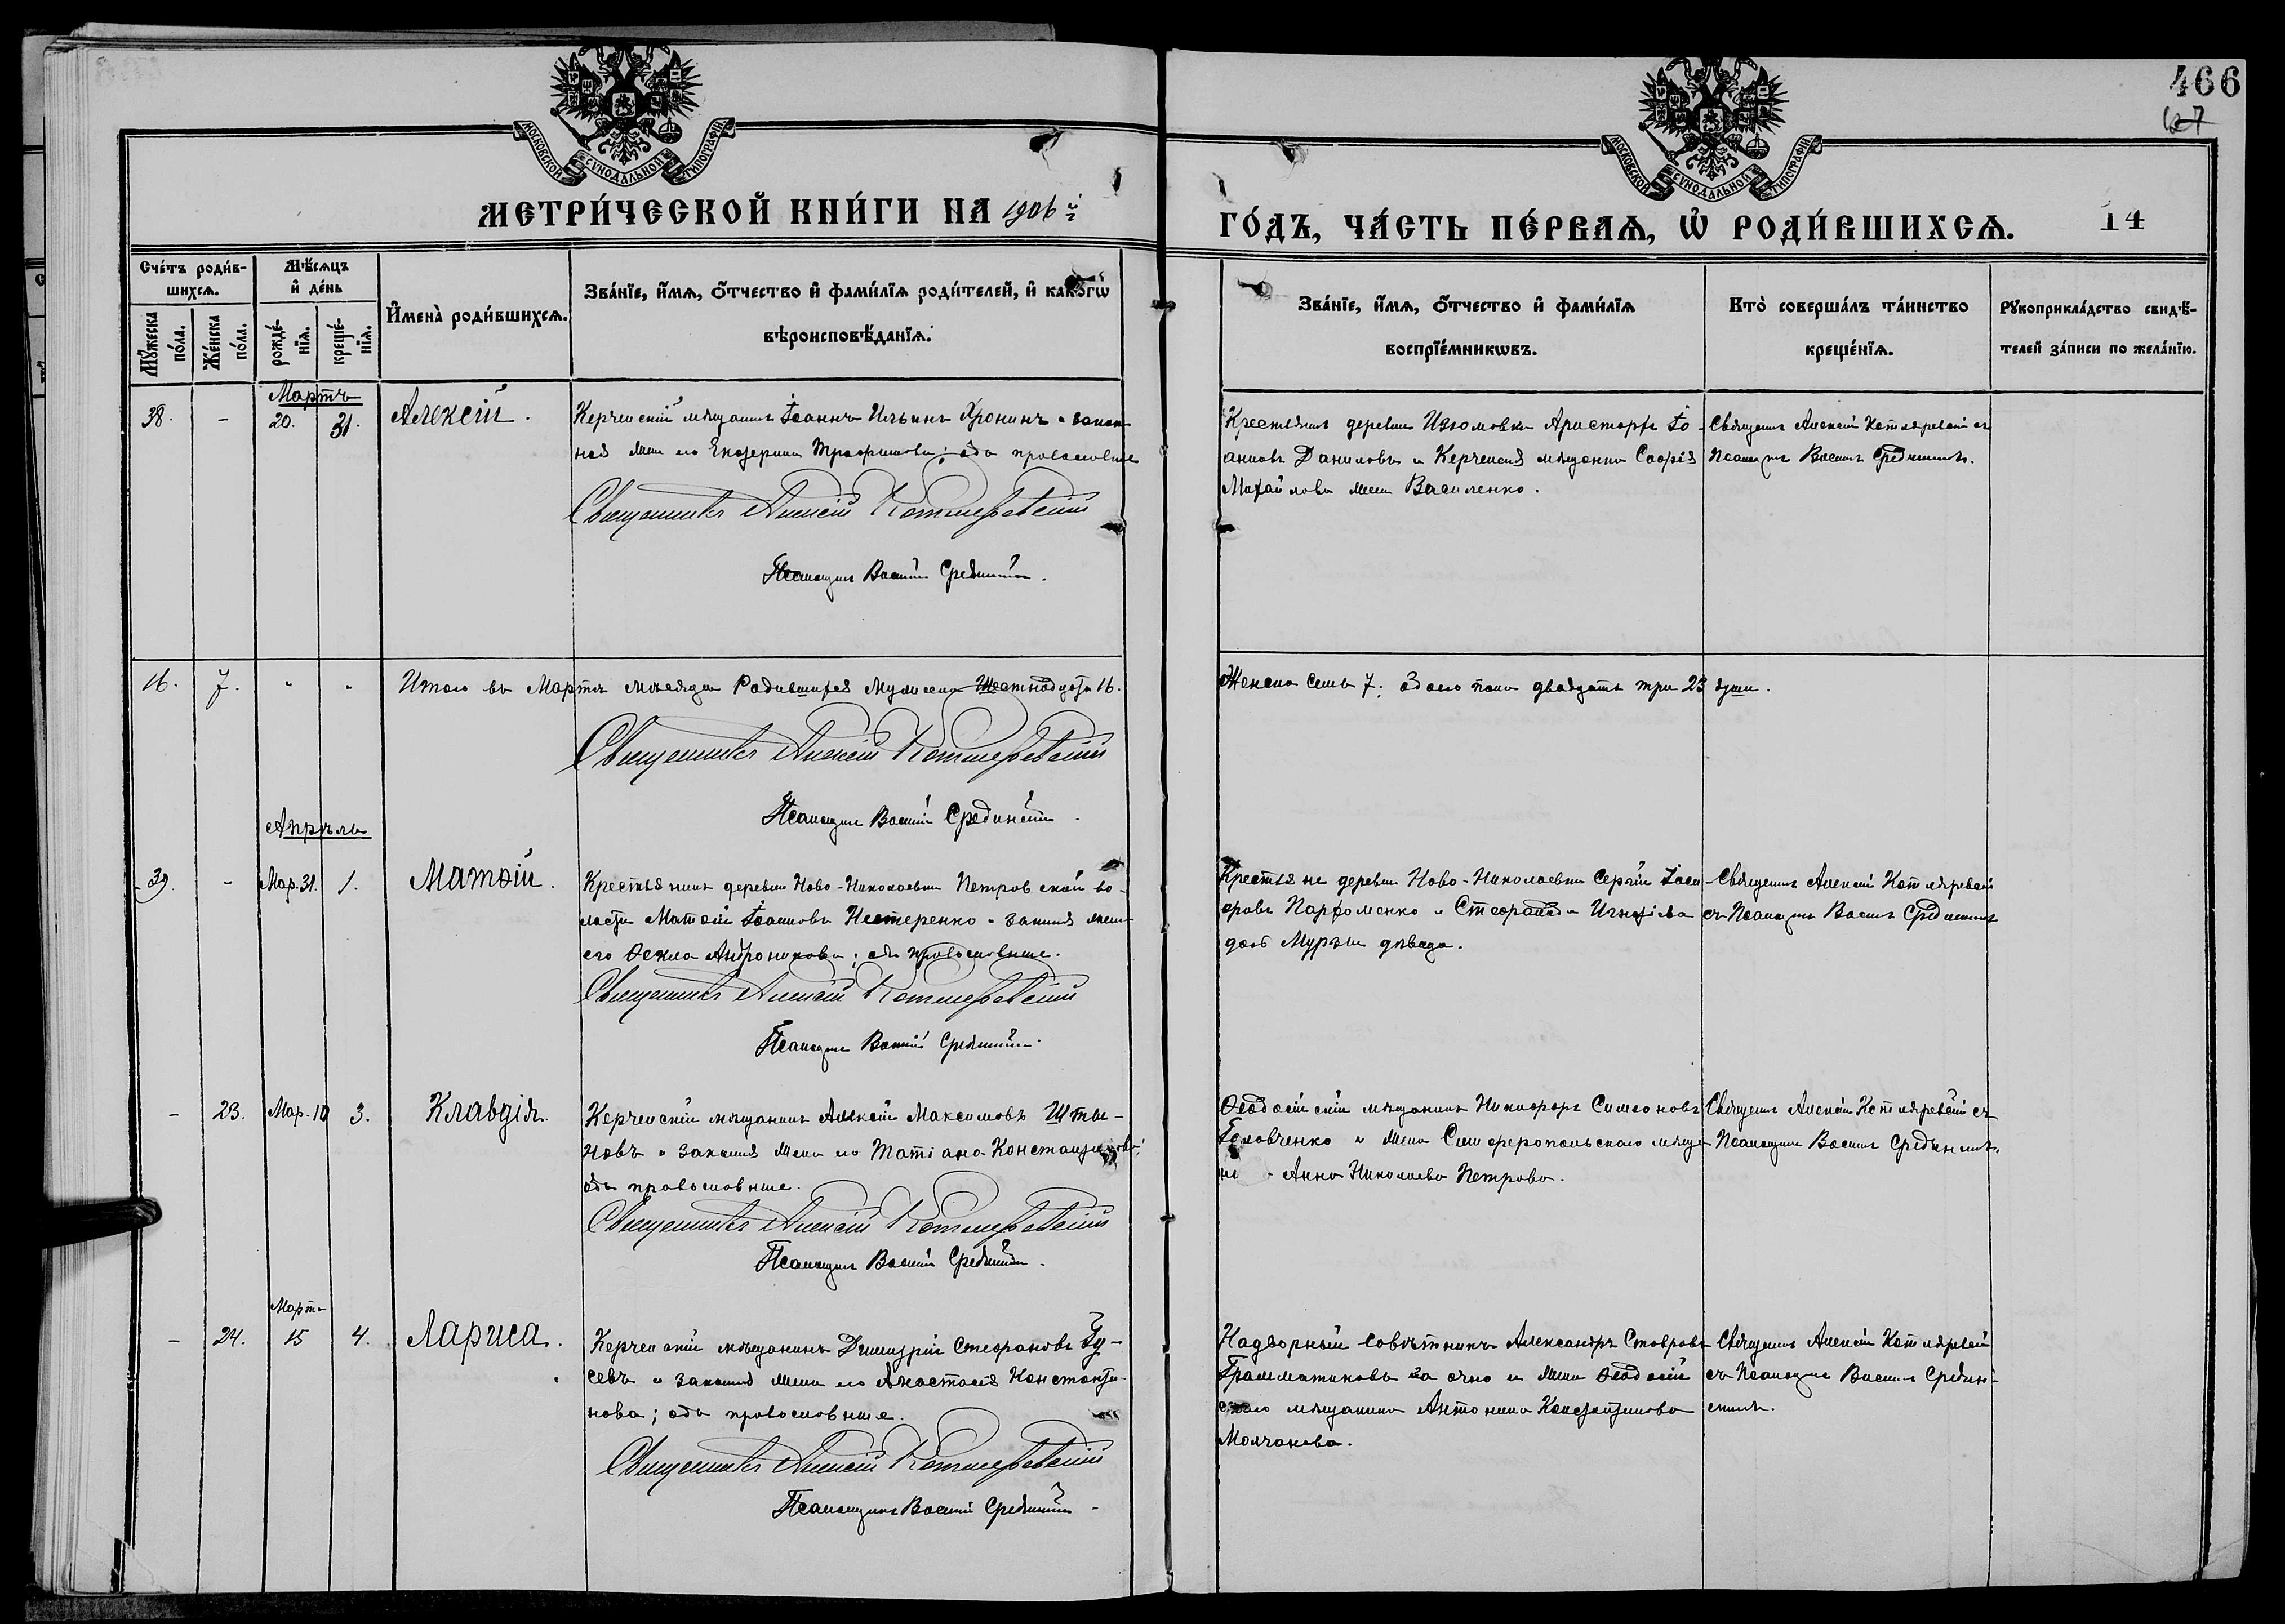 466
67
МОСКОВСКОЙ СѴНОДАЛЬНОЙ ТИПОГРАФІИ
МОСКОВСКОЙ СѴНОДАЛЬНОЙ ТИПОГРАФІИ
МЕТРИ́ЧЕСКОЙ КНИ́ГИ НА 1906й
ГО́ДЪ, ЧА́СТЬ ПЕ́РВАѦ, Ѡ҆ РОДИ́ВШИХСѦ.
14
Сче́тъ роди́в-
шихсѧ.
Мꙋ́жеска по́ла.
Же́нска по́ла.
Мѣ́сѧцъ
и҆ де́нь
рожде́-
нїѧ.
креще́-
нїѧ.
И҆мена̀ роди́вшихсѧ.
Зва́нїе, и҆́мѧ, ѻ҆́тчество и҆ фами́лїѧ роди́телей, и҆ како́гѡ
вѣроисповѣ́данїѧ.
Зва́нїе, и҆́мѧ, ѻ҆́тчество и҆ фами́лїѧ
воспрїе́мникѡвъ.
Кто̀ соверша́лъ та́инство
креще́нїѧ.
Рꙋкоприкла́дство свидѣ́-
телей за́писи по жела́нїю.
Мартъ
38.
-
20.
31.
Алексій.
Керченскій мѣщанинъ Іоаннъ Ильинъ Хронинъ и закон-
ная жена его Екатерина Трофимова; оба православные
Священникъ Алексій Котляревскій
Псаломщикъ Василій Срединскій.
Крестьянинъ деревни Изюмовки Аристархъ Іо-
анновъ Даниловъ и Керченская мѣщанка Софія
Михайлова жена Василенко.
Священникъ Алексій Котляревскій съ
Псаломщ. Василіемъ Срединскимъ.
16.
7.
"
"
Итого въ Мартѣ мѣсяцѣ Родившихся Мужеска Шестнадцать 16.
Женска семь 7; Обоего пола двадцать три 23 души.
Священникъ Алексій Котляревскій
Псаломщикъ Василій Срединскій.
Апрѣль
39.
-
Мар. 31.
1.
Матѳій.
Крестьянинъ деревни Ново-Николаевки Петровской во-
лости Матѳій Іоанновъ Нестеренко и законная жена
его Ѳекла Андроникова; оба православные.
Священникъ Алексій Котляревскій
Псаломщикъ Василій Срединскій.
Крестьяне деревни Ново-Николаевки Сергій
Парфоменко и Стефанида Игнатіева
дочь Мурзы дѣвица.
Священникъ Алексій Котляревскій
съ Псаломщ. Василіемъ Срединскимъ
-
23.
Мар. 10
3.
Клавдія.
Керченскій мѣщанинъ Алексій Максимовъ Шты-
новъ и законная жена его Татіана Константинова;
оба православные.
Священникъ Алексій Котляревскій
Псаломщикъ Василій Срединскій.
Ѳеодосійскій мѣщанинъ Никифоръ Симеоновъ
Головченко и жена Симферопольскаго мѣща-
нина Анна Николаева Петрова.
Священникъ Алексій Котляревскій съ
Псаломщикомъ Василіемъ Срединскимъ.
-
24.
Марта
15
4.
Лариса.
Керченскій мѣщанинъ Димитрій Стефановъ Гу-
севъ и законная жена его Анастасія Константи-
нова; оба православные.
Священникъ Алексій Котляревскій
Псаломщикъ Василій Срединскій
Надворный Совѣтникъ Александръ Ставровъ
Грамматиковъ заочно и жена Ѳеодосій-
скаго мѣщанина Антонина Константинова
Молчанова.
Священникъ Алексій Котляревскій
съ Псаломщик. Василіемъ Средин-
скимъ.